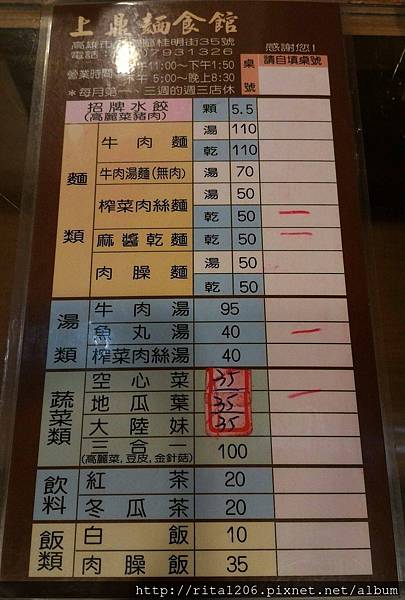 上鼎麵食館
高雄市 桂明街35號
電話 7931326
營業時間 11:00～下午1:50
下午5:00～晚上8:30
＊每月第一、三週的週三店休
感謝您!
桌號
請自填桌號
招牌水餃 顆 5.5
(高麗菜豬肉)
麵類
牛肉麵 湯 110
乾 110
牛肉湯麵(無肉) 湯 70
榨菜肉絲麵 湯 50
乾 50 一
麻醬乾麵 乾 50 一
肉燥麵 湯 50
乾 50
湯類
牛肉湯 95
魚丸湯 40 一
榨菜肉絲湯 40
蔬菜類
空心菜 35 一
地瓜葉 35
大陸妹 35
三合一 100
(高麗菜,豆皮,金針菇)
飲料
紅茶 20
冬瓜茶 20
飯類
白飯 10
肉燥飯 35
http://rita1206.pixnet.net/album